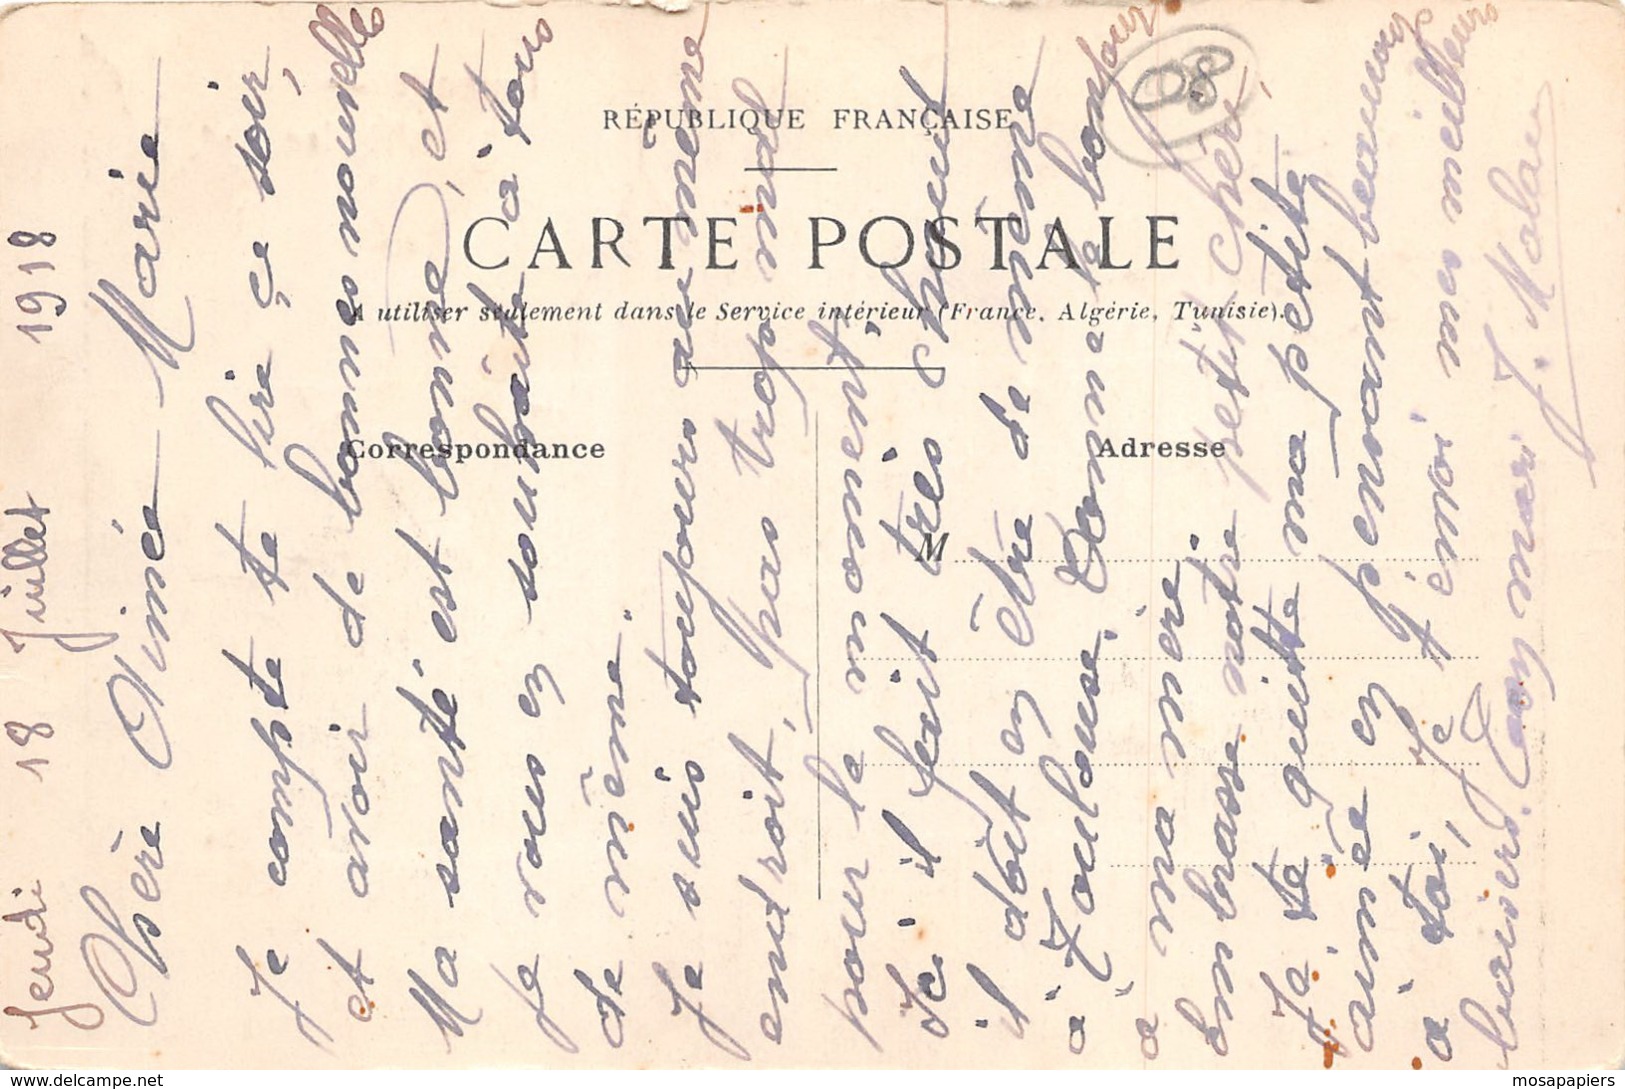 RÉPUBLIQUE FRANÇAISE
CARTE POSTALE
A utiliser seulement dans le Service intérieur (France, Algérie, Tunisie).
Correspondance
Adresse
M
Jeudi 18 Juillet 1918
Chère Aimée Marie
Je compte te lire çe soir,
et avoir de bonnes nouvelles
Ma santé est bonne, et
je vous en souhaite à tous
de même.
Je suis toujours au même
endroit, pas trop mal
pour le moment,
Ici il fait très chaud
il doit en être de même
à Toulouse, Donne le bonjour
a ma mère
Embrasse notre petit chéri
Je te quitte ma petite
aimée en pensant beaucoup
a toi, Je t'envoi mes meilleurs
baisers. Ton mari J.
98
delcampe.net
mosapapiers